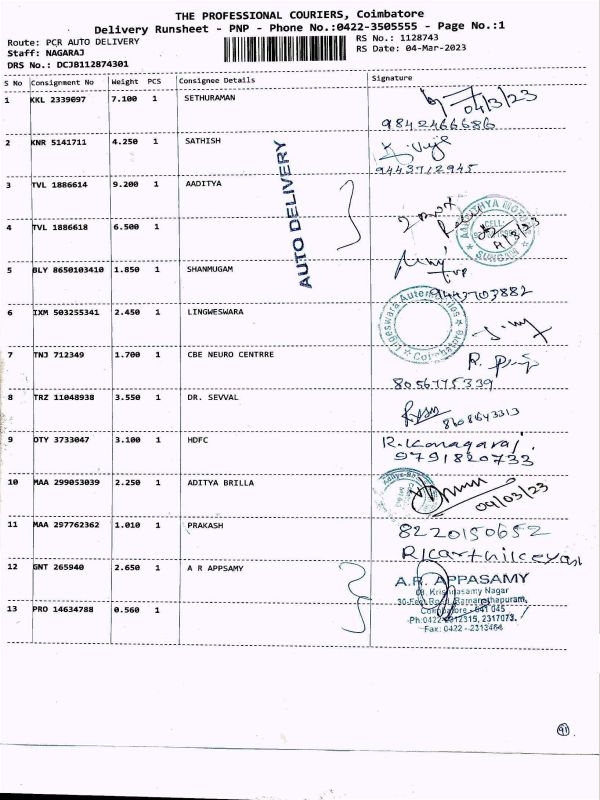 THE PROFESSIONAL COURIERS, Coimbatore
Delivery Runsheet - PNP - Phone No.:0422-3505555 - Page No.:1
Route: PCR AUTO DELIVERY RS No.: 1128743
Staff: NAGARAJ RS Date: 04-Mar-2023
DRS No.: DCJB112874301
S No Consignment No Weight PCS Consignee Details Signature
1 KKL 2339097 7.100 1 SETHURAMAN
04/3/23
9842466686
2 KNR 5141711 4.250 1 SATHISH
9443712945
AUTO DELIVERY
3 TVL 1886614 9.200 1 AADITYA
4 TVL 1886618 6.500 1
5 BLY 8650103410 1.850 1 SHANMUGAM
9443703882
6 IXM 503255341 2.450 1 LINGWESWARA
Coimbatore
7 TNJ 712349 1.700 1 CBE NEURO CENTRRE
8056775339
8 TRZ 11048938 3.550 1 DR. SEVVAL
8608643313
9 OTY 3733047 3.100 1 HDFC
R.Kanagaraj.
9791820733
10 MAA 299053039 2.250 1 ADITYA BRILLA
04/03/23
11 MAA 297762362 1.010 1 PRAKASH
8220150652
R1carthilceyan
12 GNT 265940 2.650 1 A R APPSAMY
13 PRO 14634788 0.560 1
A.R. APPASAMY
Krishnasamy Nagar
Ramanathapuram,
Coimbatore - 641 045
Ph:0422-2312315, 2317073.
Fax: 0422 - 2313464
91